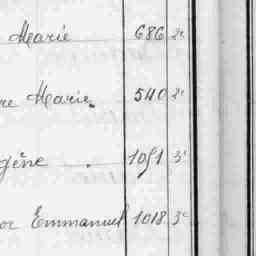 Marie 686 2e
re Marie 540 2e
gène 1051 3e
or Emmanuel 1018 3e